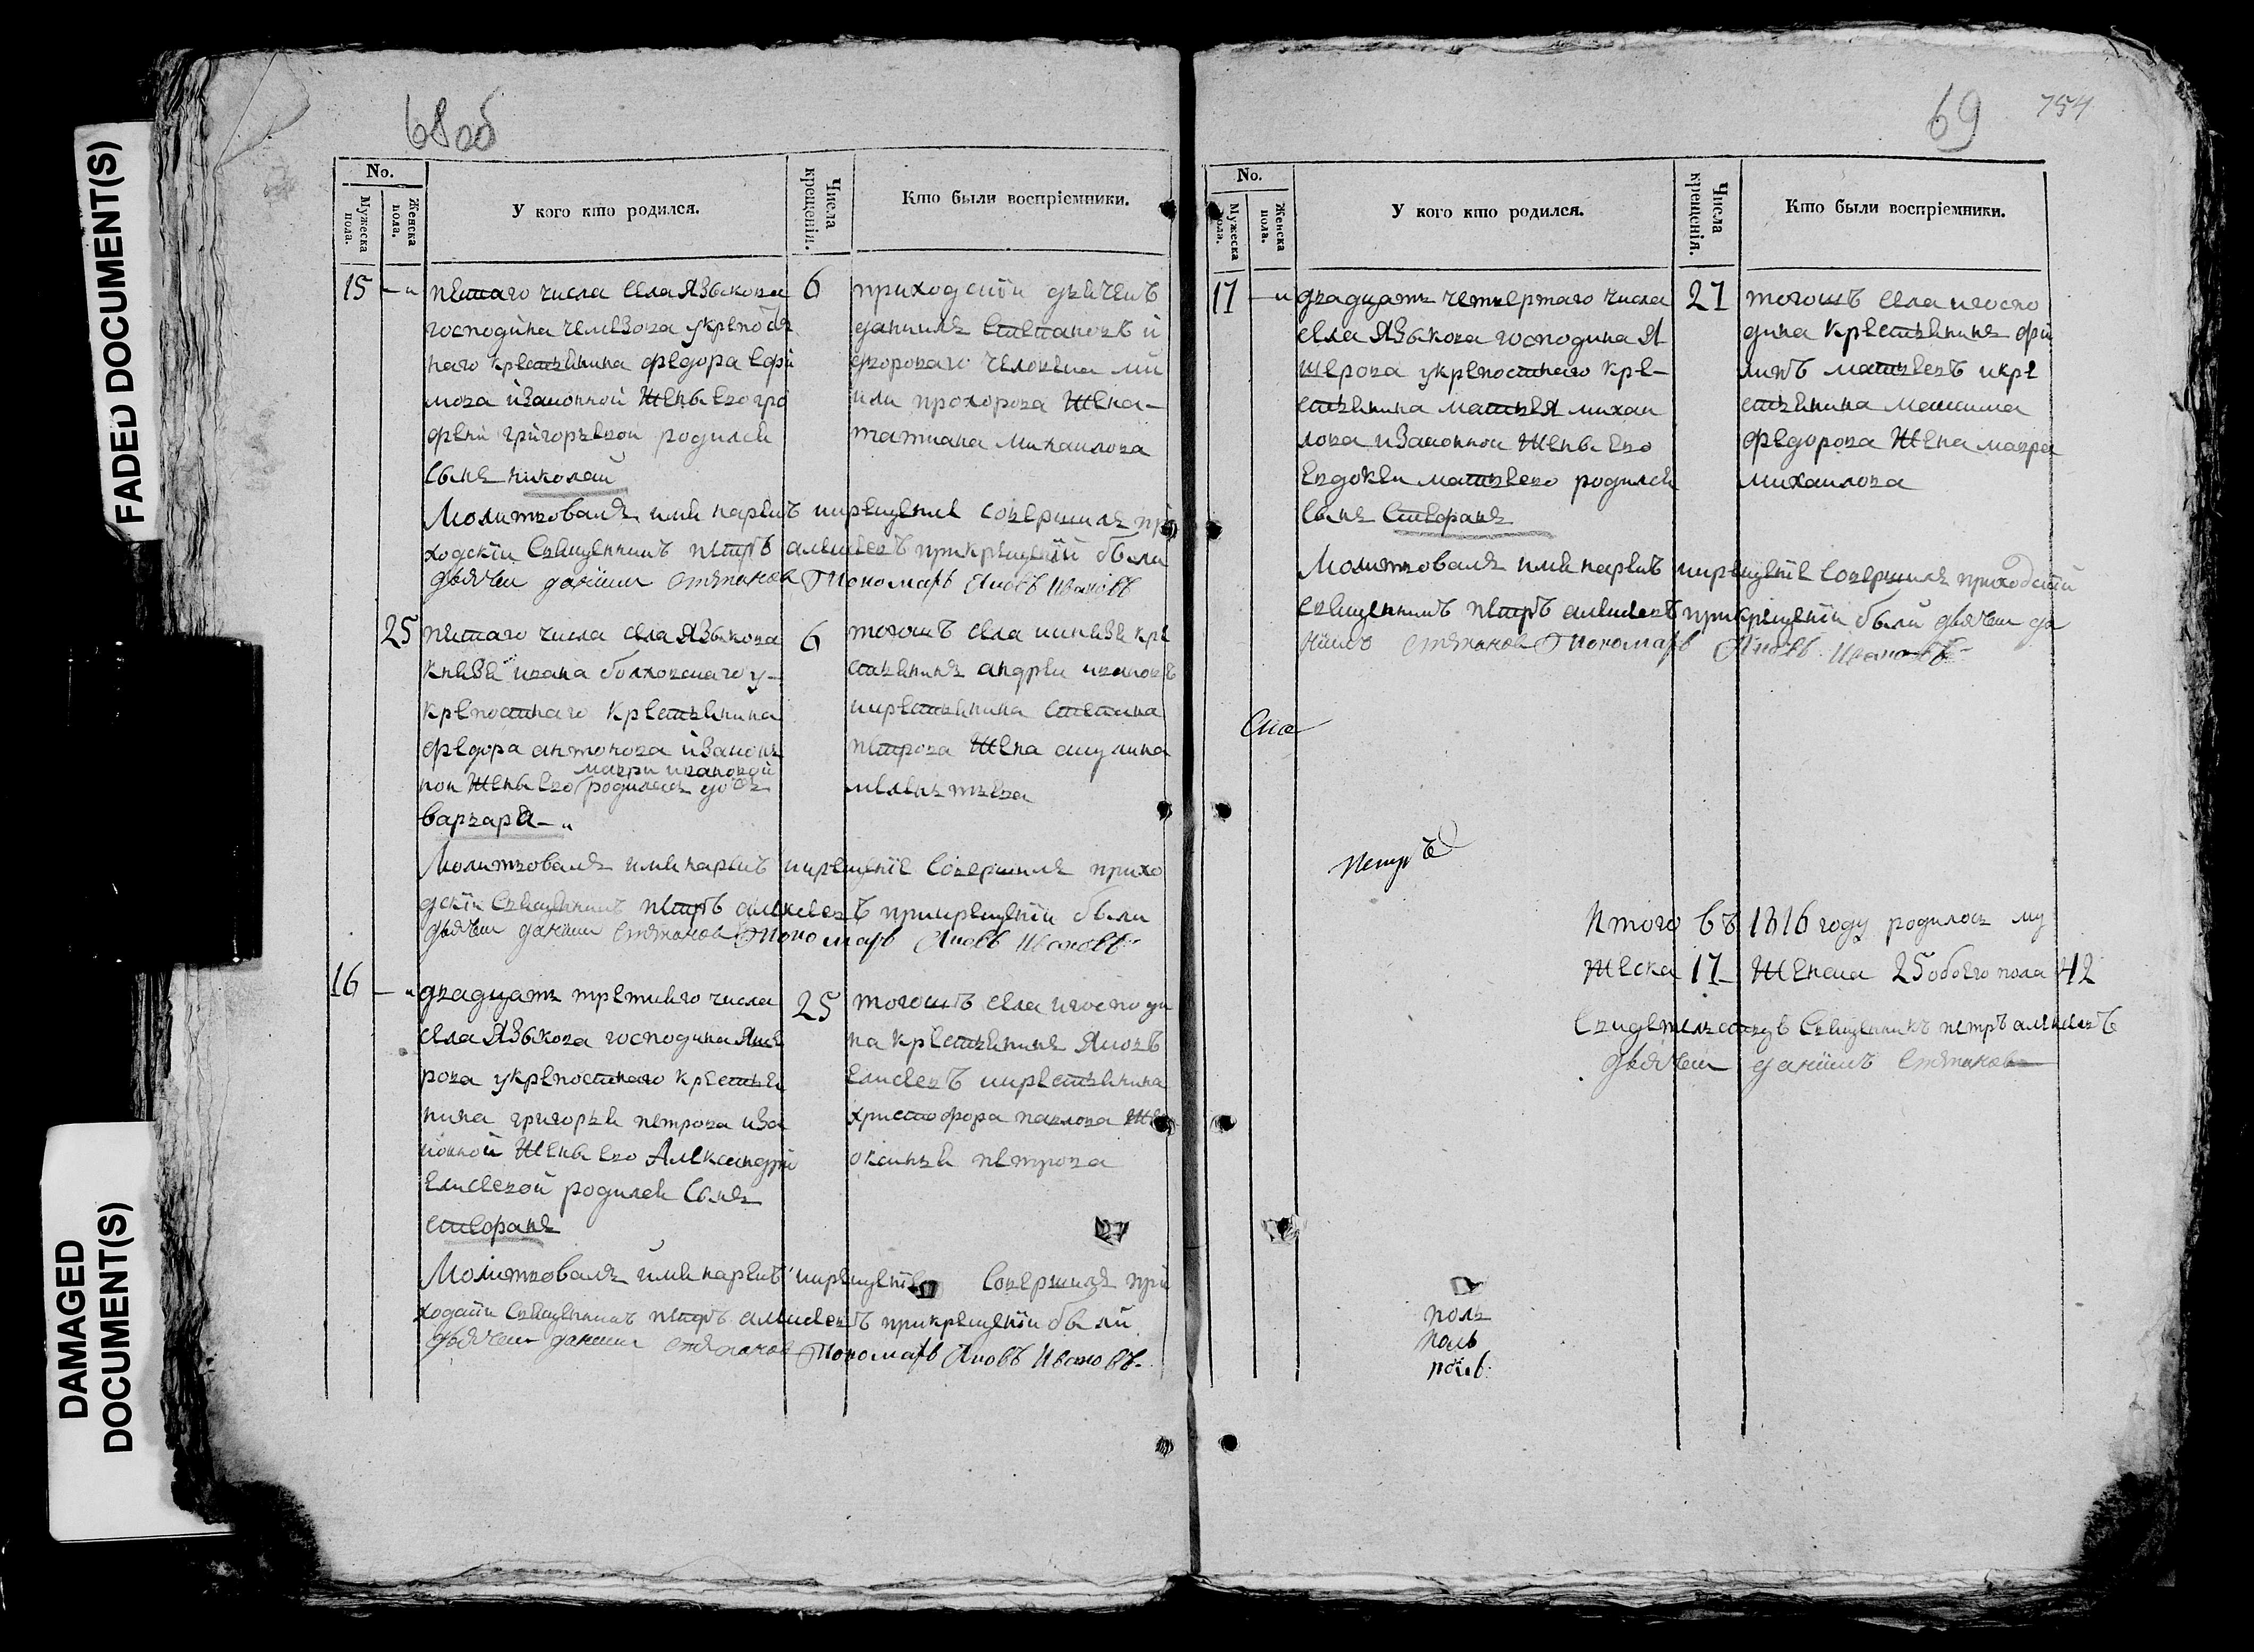 FADED DOCUMENT(S)
DAMAGED
DOCUMENT(S)
68 об
No.
Мужеска пола.
Женска пола.
У кого кто родился.
Числа крещенія.
Кто были воспріемники.
15
пятаго числа села Языкова
господина укрепос
наго крестьянина федора ефи
мова изаконной жены его гро
фени григорьевой родился
сынъ николай
6
приходскiй дьячекъ
данiилъ степановъ и
дворового человека ми
прохорова жена
татиана михаилова
Молитвовалъ имя нарекъ икрещенiе совершилъ при
ходскiй священникъ петръ алексеевъ прикрещенiи были
дьячекъ данiилъ степановъ Пономарь Яковъ Ивановъ
25
пятаго числа села Языкова
князя ивана болховскаго у
крепостнаго крестьянина
федора антонова изакон
ной жены его мавры ивановой родилась дочь
варвара
6
тогожъ села икнязя кре
стьянинъ андрей ивановъ
икрестьянина степана
петрова жена акулина
Молитвовалъ имя нарекъ икрещенiе совершилъ прихо
дскiй священникъ петръ алексеевъ прикрещенiи были
дьячекъ данiилъ степановъ Пономарь Яковъ Ивановъ
16
двадцать третияго числа
села Языкова господина Яше
рова укрепостнаго крестья
нина григорья петрова иза
конной жены его Александры
Елисевой родился сынъ
стефанъ
25
тогожъ села игосподи
на крестьянинъ Яковъ
Елисевъ икрестьянина
христофора павлова же
оксинья петрова
Молитвовалъ имя нарекъ икрещенiе совершилъ при
ходскiй священникъ петръ алексеевъ прикрещенiи были
дьячекъ данiилъ степановъ Пономарь Яковъ Ивановъ
69
754
No.
Мужеска пола.
Женска пола.
У кого кто родился.
Числа крещенія.
Кто были воспріемники.
17
двадцать четвертаго числа
села Языкова господина Я
шерова укрепостнаго кре-
стьянина матвея михаи
лова изаконной жены его
евдокеи матвево родился
сынъ стефанъ
27
тогожъ села игоспо
дина крестьянинъ фи
липъ матвеевъ икре
стьянина максима
федорова жена мавра
михаилова
Молитвовалъ имя нарекъ икрещенiе совершилъ приходскiй
священникъ петръ алексеевъ прикрещенiи были дьячекъ да
нiилъ степановъ Пономарь Яковъ Ивановъ
Петръ
Итого въ 1816 году родилось му
жеска 17 женска 25 обоего пола 42
Свидетельствуетъ священникъ петръ алексеевъ
дьячекъ данiилъ степановъ